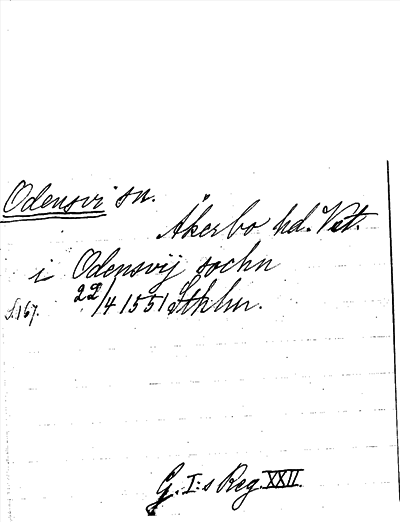 Odensvi sn.
Åkerbo hd. Vstm.
i Odensvij sochn
S.167. 22/4 1551 Sthlm.
G. I:s Reg. XXII.